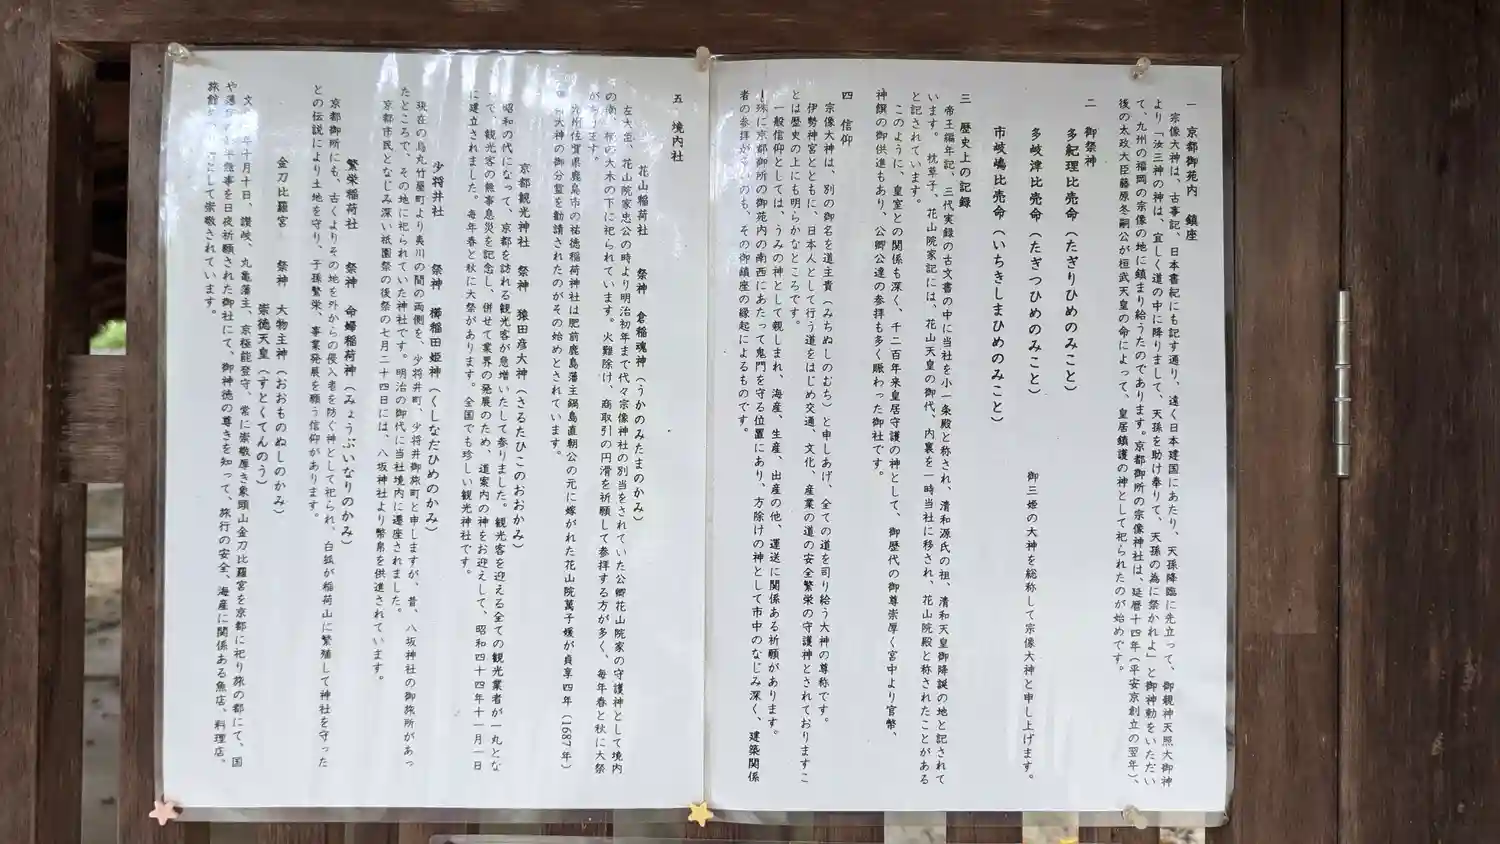 一　京都御苑内　鎮座
宗像大神は、古事記、日本書紀にも記す通り、遠く日本建国にあたり、天孫降臨に先立って、御親神天照大御神
より「汝三神の神は、宜しく道の中に降りまして、天孫を助け奉りて、天孫の為に祭かれよ」と御神勅をいただい
て、九州の福岡の宗像の地に鎮まり給うたのであります。京都御所の宗像神社は、延暦十四年（平安京創立の翌年）、
後の太政大臣藤原冬嗣公が桓武天皇の命によって、皇居鎮護の神として祀られたのが始めです。
二　御祭神
多紀理比売命（たぎりひめのみこと）
多岐津比売命（たぎつひめのみこと）　御三姫の大神を総称して宗像大神と申し上げます。
市岐嶋比売命（いちきしまひめのみこと）
三　歴史上の記録
帝王編年記、三代実録の古文書の中に当社を小一条殿と称され、清和源氏の祖、清和天皇御降誕の地と記されて
います。枕草子、花山院家記には、花山天皇の御代、内裏を一時当社に移され、花山院殿と称されたことがある
と記されています。
このように、皇室との関係も深く、千二百年来皇居守護の神として、御歴代の御尊崇厚く宮中より官幣、
神饌の御供進もあり、公卿公達の参拝も多く賑わった御社です。
四　信仰
宗像大神は、別の御名を道主貴（みちぬしのむち）と申しあげ、全ての道を司り給う大神の尊称です。
伊勢神宮とともに、日本人として行う道をはじめ交通、文化、産業の道の安全繁栄の守護神とされておりますこ
とは歴史の上にも明らかなところです。
一般信仰としては、うみの神として親しまれ、海産、生産、出産の他、運送に関係ある祈願があります。
殊に京都御所の御苑内の南西にあたって鬼門を守る位置にあり、方除けの神として市中のなじみ深く、建築関係
者の参拝が多いのも、その御鎮座の縁起によるものです。
五　境内社
花山稲荷社　祭神　倉稲魂神（うかのみたまのかみ）
左大臣、花山院家忠公の時より明治初年まで代々宗像神社の別当をされていた公卿花山院家の守護神として境内
の南、　の大木の下に祀られています。火難除け、商取引の円滑を祈願して参拝する方が多く、毎年春と秋に大祭
があります。
佐賀県鹿島市の祐徳稲荷神社は肥前鹿島藩主鍋島直朝公の元に嫁がれた花山院萬子媛が貞享四年（1687年）
大神の御分霊を勧請されたのがその始めとされています。
京都観光神社　祭神　猿田彦大神（さるたひこのおおかみ）
昭和の代になって、京都を訪れる観光客が急増いたして参りました。観光客を迎える全ての観光業者が一丸とな
って、観光客の無事息災を記念し、併せて業界の発展のため、道案内の神をお迎えして、昭和四十四年十一月一日
に建立されました。毎年春と秋に大祭があります。全国でも珍しい観光神社です。
少将井社　祭神　櫛稲田姫神（くしなだひめのかみ）
現在の烏丸竹屋町より夷川の間の両側を、少将井町、少将井御旅町と申しますが、昔、八坂神社の御旅所があっ
たところで、その地に祀られていた神社です。明治の御代に当社境内に遷座されました。
京都市民となじみ深い祇園祭の後祭の七月二十四日には、八坂神社より幣帛を供進されています。
繁栄稲荷社　祭神　命婦稲荷神（みょうぶいなりのかみ）
京都御所にも、古くよりその地を外からの侵入者を防ぐ神として祀られ、白狐が稲荷山に繁殖して神社を守った
との伝説により土地を守り、子孫繁栄、事業発展を願う信仰があります。
金刀比羅宮　祭神　大物主神（おおものぬしのかみ）
崇徳天皇（すとくてんのう）
文　年十月十日、讃岐、丸亀藩主、京極能登守、常に崇敬厚き象頭山金刀比羅宮を京都に祀り旅の都にて、国
や藩　無事を日夜祈願された御社にて、御神徳の尊さを知って、旅行の安全、海産に関係ある魚店、料理店、
旅館　として崇敬されています。